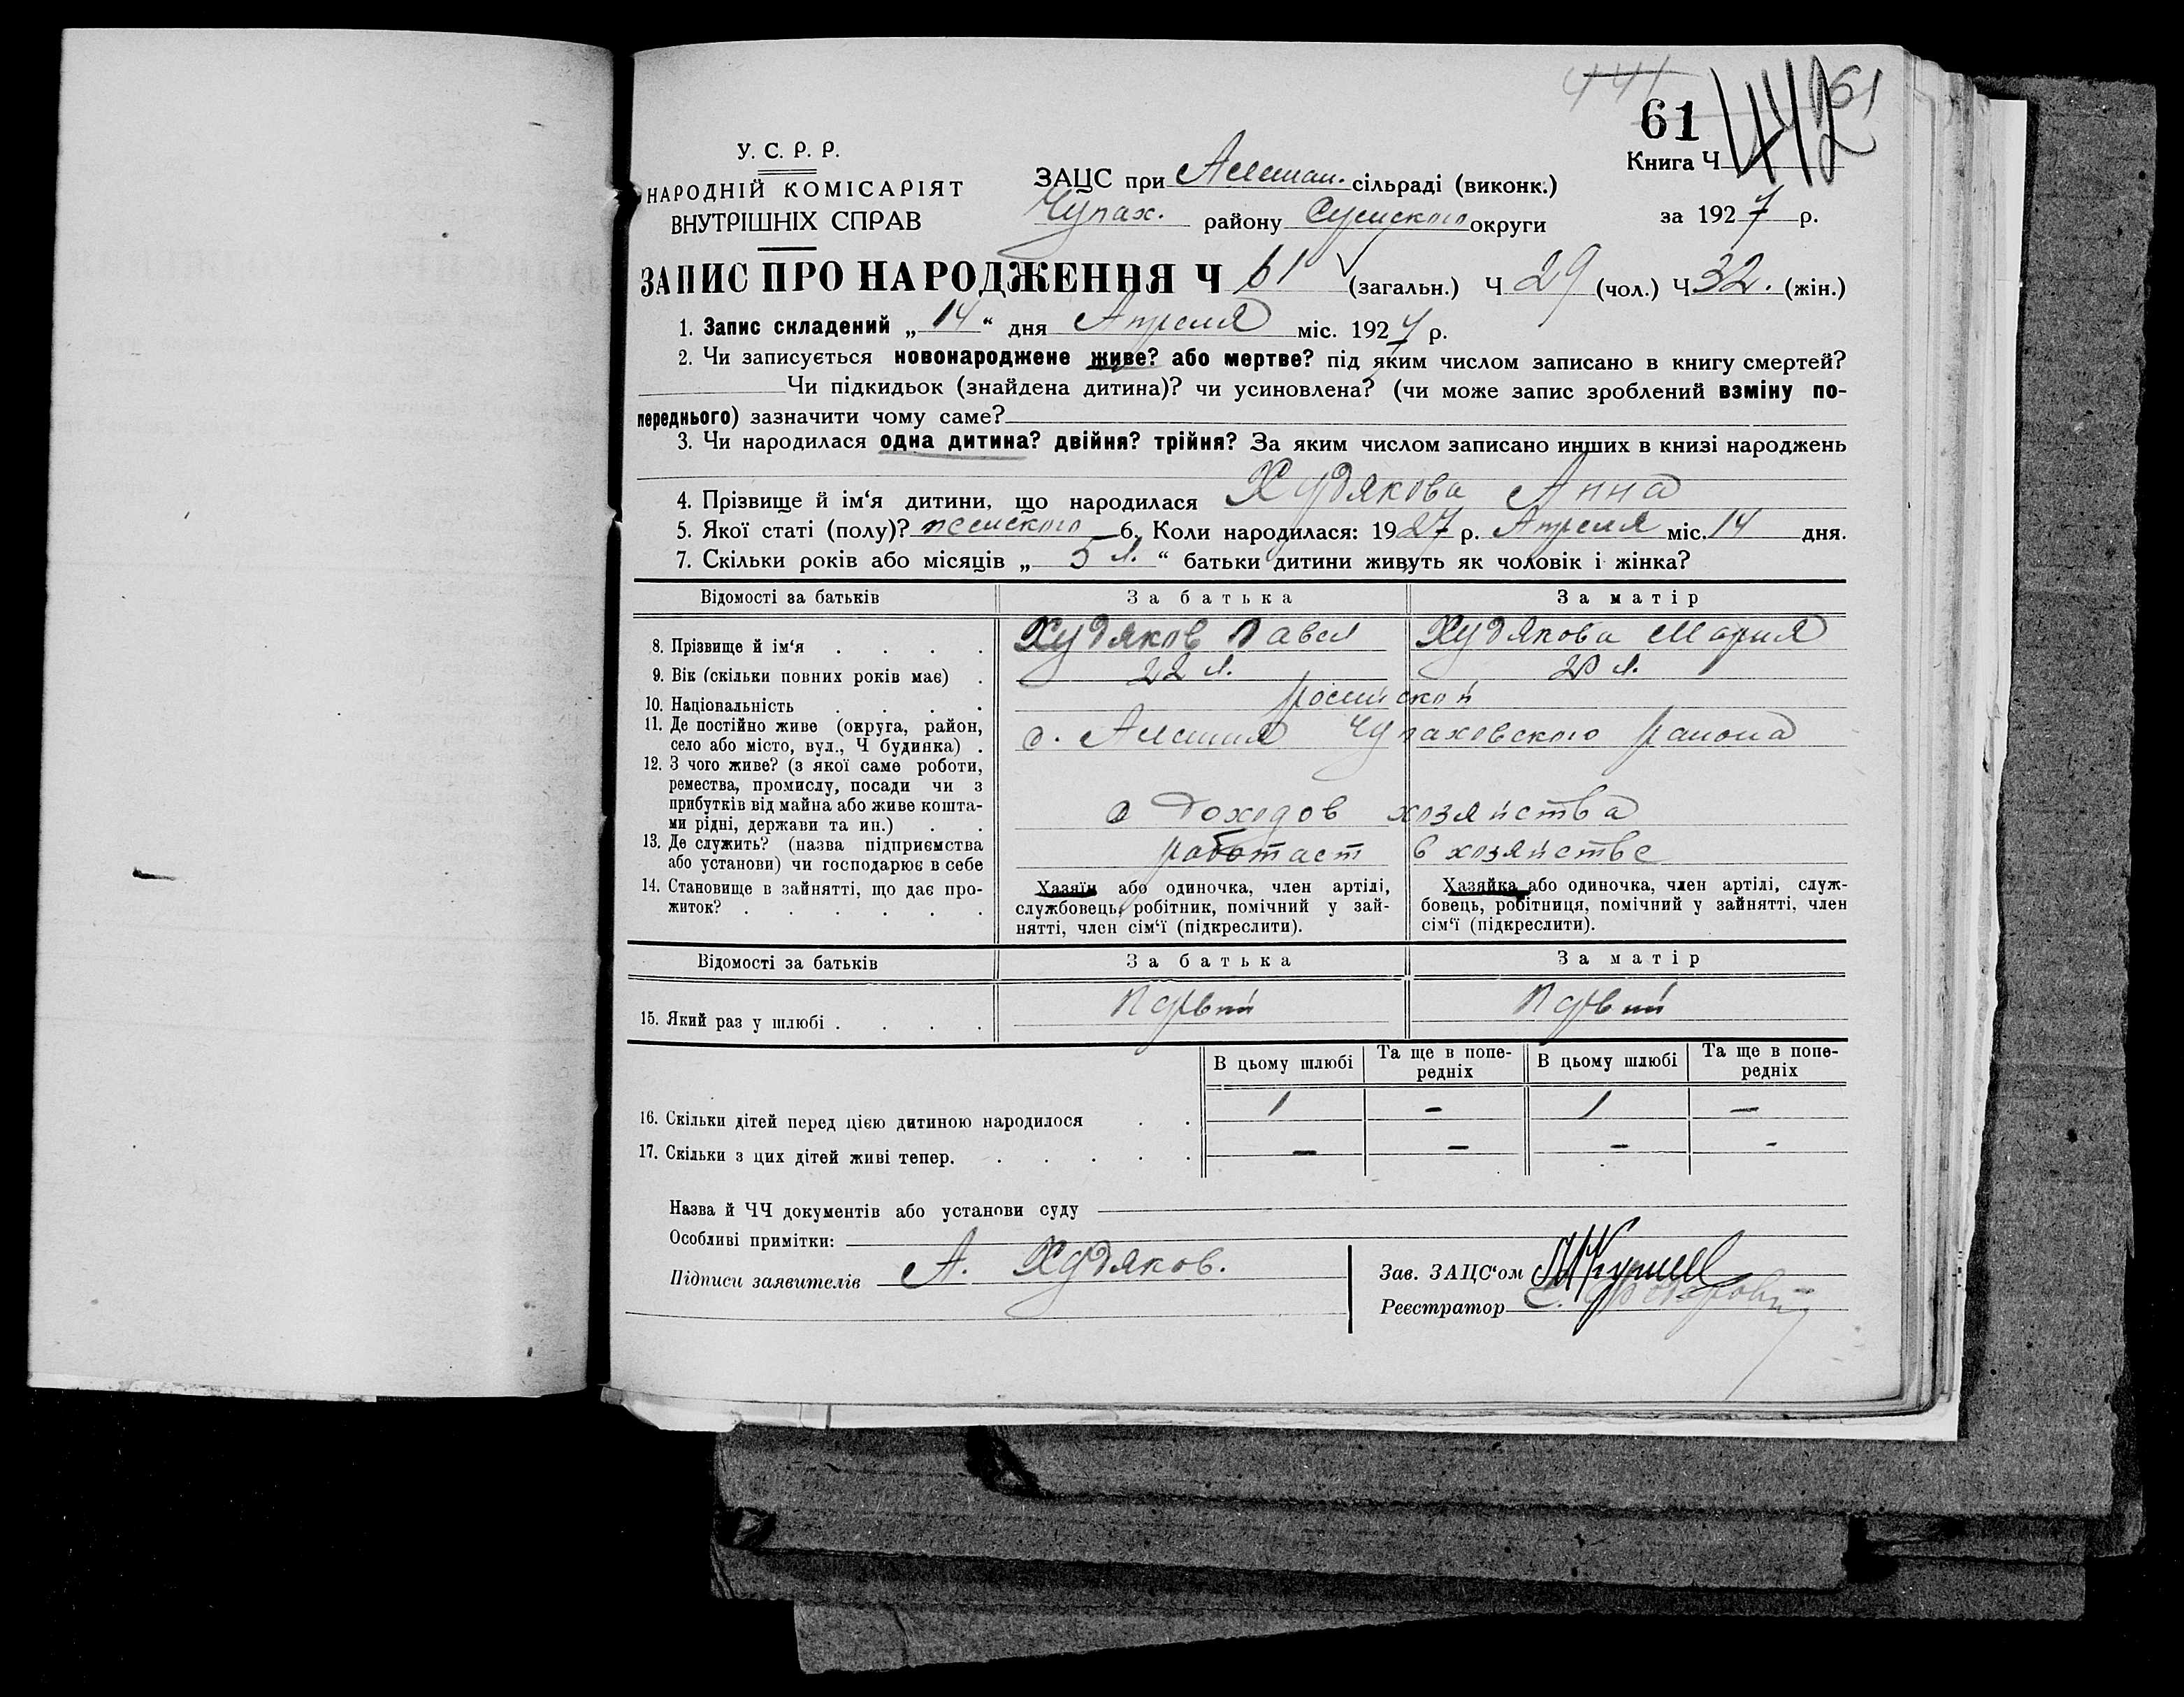 441
61 442 61
У. С. Р. Р.
Книга Ч
НАРОДНІЙ КОМІСАРІЯТ
ВНУТРІШНІХ СПРАВ
ЗАЦС при Алешан. сільраді (виконк.)
Чупах. району Сумского округи
за 1927 р.
ЗАПИС ПРО НАРОДЖЕННЯ Ч 61 (загальн.) Ч 29 (чол.) Ч 32. (жін.)
1. Запис складений „ 14 “ дня Апреля міс. 1927 р.
2. Чи записується новонароджене живе? або мертве? під яким числом записано в книгу смертей?
Чи підкидьок (знайдена дитина)? чи усиновлена? (чи може запис зроблений взміну по-
переднього) зазначити чому саме?
3. Чи народилася одна дитина? двійня? трійня? За яким числом записано инших в книзі народжень
4. Прізвище й ім‘я дитини, що народилася Худякова Анна
5. Якої статі (полу)? женского 6. Коли народилася: 1927 р. Апреля міс. 14 дня.
7. Скільки років або місяців „ 5 л. “ батьки дитини живуть як чоловік і жінка?
Відомості за батьків За батька За матір
8. Прізвище й ім‘я . . . . Худяков Павел Худякова Мария
9. Вік (скільки повних років має) . 22 л. 20 л.
10. Національність . . . .
11. Де постійно живе (округа, район,
село або місто, вул., Ч будинка) . Чупаховского района
12. З чого живе? (з якої саме роботи,
ремества, промислу, посади чи з
прибутків від майна або живе кошта-
ми рідні, держави та ин.) . . доходов хозяйства
13. Де служить? (назва підприємства
або установи) чи господарює в себе работает в хозяйстве
14. Становище в зайнятті, що дає про-
житок? . . . . . .
Хазяїн або одиночка, член артілі,
службовець, робітник, помічний у зай-
нятті, член сім‘ї (підкреслити).
Хазяйка або одиночка, член артілі, служ-
бовець, робітниця, помічний у зайнятті, член
сім‘ї (підкреслити).
Відомості за батьків За батька За матір
15. Який раз у шлюбі . . . . Первый Первый
В цьому шлюбі Та ще в попе-
редніх В цьому шлюбі Та ще в попе-
редніх
16. Скільки дітей перед цією дитиною народилося . . 1 - 1 -
17. Скільки з цих дітей живі тепер. . . . . . - - - -
Назва й ЧЧ документів або установи суду
Особливі примітки:
Підписи заявителів А. Худяков.
Зав. ЗАЦС‘ом
Реєстратор